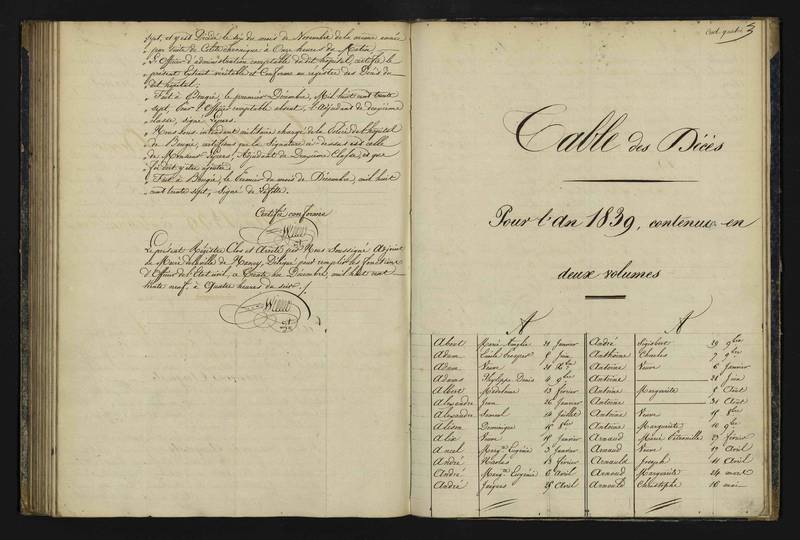 sept, et y est Décédé le six du mois de Novembre de la même année
par suite de Colite chronique à Onze heures du Matin
L'Officier d'administration comptable dudit hôpital, certifie le
présent Extrait véritable et Conforme au registre des Décès du
dit hôpital.
Fait à Bougie, le premier Décembre, Mil huit cent trente
sept, Pour l'Officier comptable absent, l'Adjudant de deuxième
classe, signé
Nous Sous intendant militaire chargé de la Police de l'hôpital
de Bougie, certifions que la Signature ci-dessus est celle
de Monsieur Adjudant de Deuxième Classe, et que
foi doit y être ajoutée
Fait à Bougie, le Premier du mois de Décembre, mil huit
cent trente sept, Signé
Certifié conforme
Le présent Registre Clos et Arrêté par Nous Soussigné Adjoint
au Maire de la ville de Nancy, Délégué pour remplir les fonctions
d'Officier de l'Etat civil, ce Trente un Décembre, mil huit cent
trente neuf à Quatre heures du soir.
Table des Décès
Pour l'an 1839, contenus en
deux volumes
A A
Abert Marie Amélie 21 Janvier André Sigisbert 29 9bre
Adam Emile Prosper 8 Juin Anthoine Charles 7 9bre
Adam Veuve Antoine Veuve 6 Janvier
Adam Philippe Denis 4 9bre Antoine 21 Juin
Albert Madeleine 13 février Antoine Marguerite Août
Alexandre Jean 26 Janvier Antoine 31 Août
Alexandre Samuel 14 Juillet Antoine Veuve 15 8bre
Alison Dominique 15 8bre Antoine Marguerite 10 9bre
Alix Veuve 19 Janvier Arnaud Marie Pétronille 27 février
Ancel Margte Eugénie 3 Janvier Arnaud Veuve 17 Avril
André Nicolas 13 février Arnauld Joseph 11 Avril
André Margte Eugénie 6 Avril Arnoud Marguerite 24 mars
André Jacques 25 Avril Arnould Christophe 16 mai